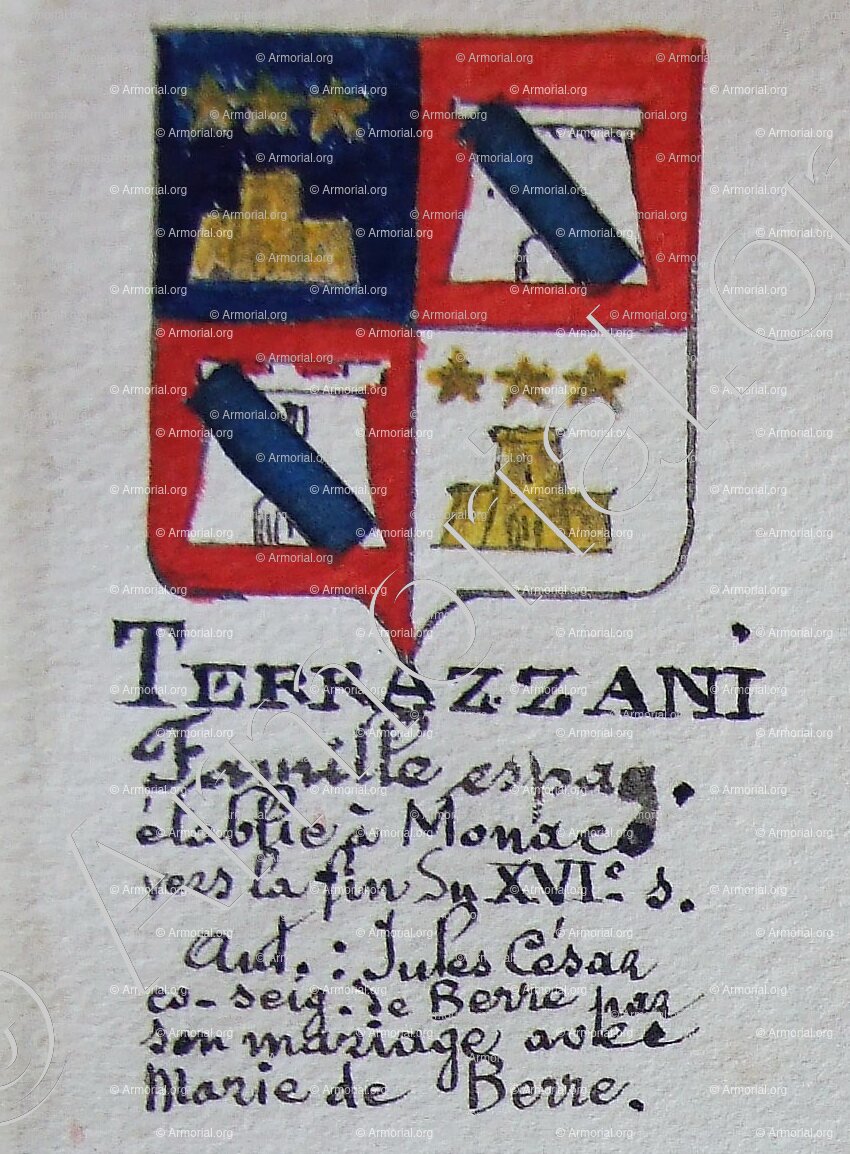 TERRAZZANI
Famille espag.
établie à Monaco
vers la fin du XVIe s.
Aut. : Jules César
co-seig. de Berre par
son mariage avec
Marie de Berre.
© Armorial.org